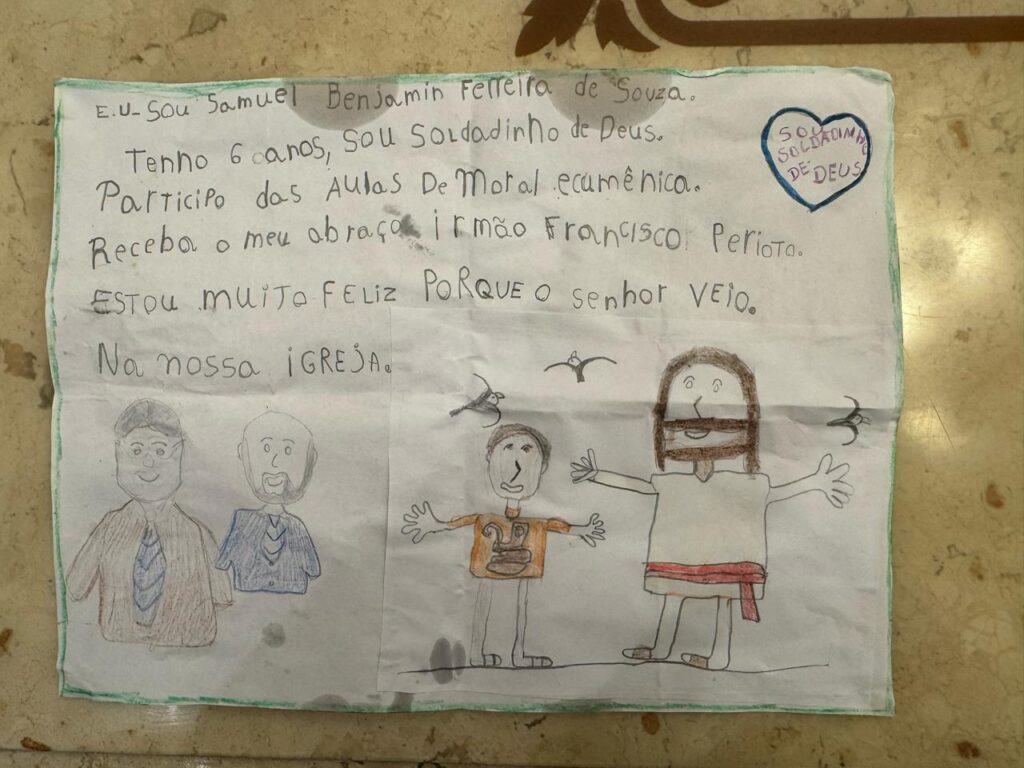 E.U- Sou Samuel Benjamin Ferreira de Souza.
Tenho 6 anos, Sou Soldadinho de Deus.
Participo das AULAS De Moral ecumênica.
Receba o meu abraço irmão Francisco Periota.
ESTOU MUITO FELIZ PORQUE o senhor VEIO.
Na nossa iGREJA.
SOU
SOLDADINHO
DE DEUS